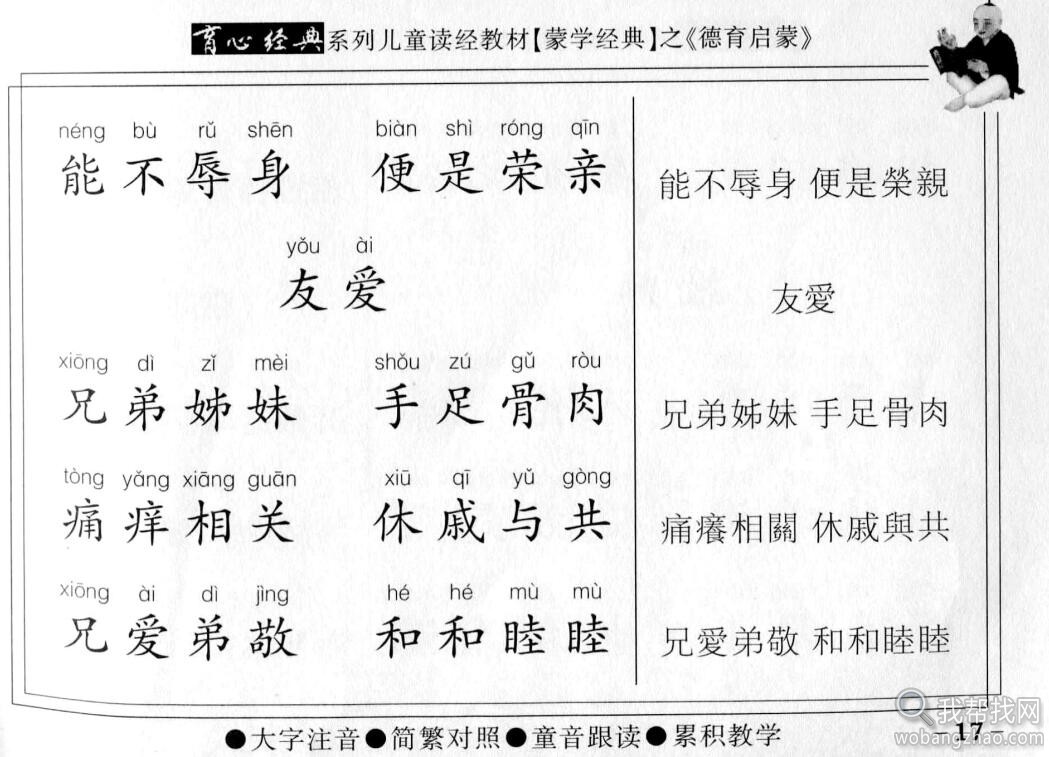 育心经典系列儿童读经教材【蒙学经典】之《德育启蒙》
néng bù rǔ shēn biàn shì róng qīn
能不辱身 便是荣亲 能不辱身 便是榮親
yǒu ài
友爱 友愛
xiōng dì zǐ mèi shǒu zú gǔ ròu
兄弟姊妹 手足骨肉 兄弟姊妹 手足骨肉
tòng yǎng xiāng guān xiū qī yǔ gòng
痛痒相关 休戚与共 痛癢相關 休戚與共
xiōng ài dì jìng hé hé mù mù
兄爱弟敬 和和睦睦 兄愛弟敬 和和睦睦
●大字注音●简繁对照●童音跟读●累积教学
–17–
我帮找网
wobangzhao.com